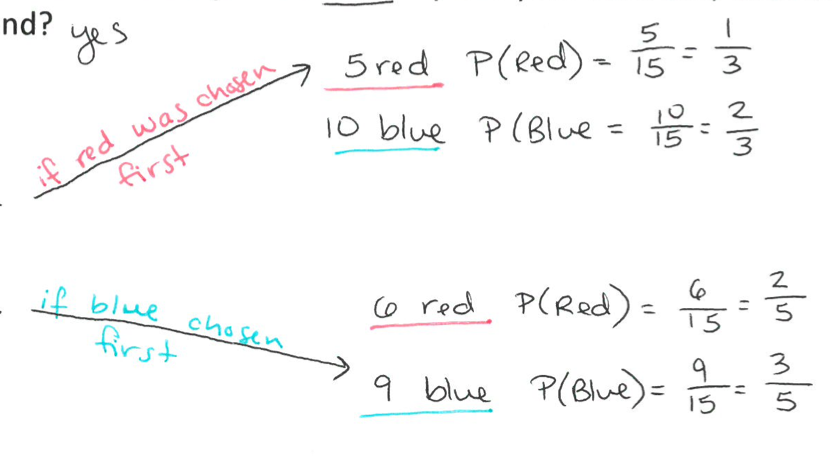 nd? yes
if red was chosen
first
5 red P(Red) = 5/15 = 1/3
10 blue P(Blue = 10/15 = 2/3
if blue chosen
first
6 red P(Red) = 6/15 = 2/5
9 blue P(Blue) = 9/15 = 3/5